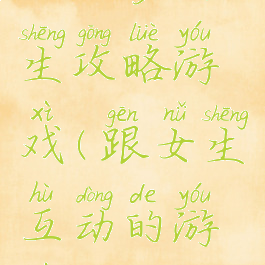 shēng gōng lüè yóu
生攻略游
xì gēn nǚ shēng
戏(跟女生
hù dòng de yóu
互动的游